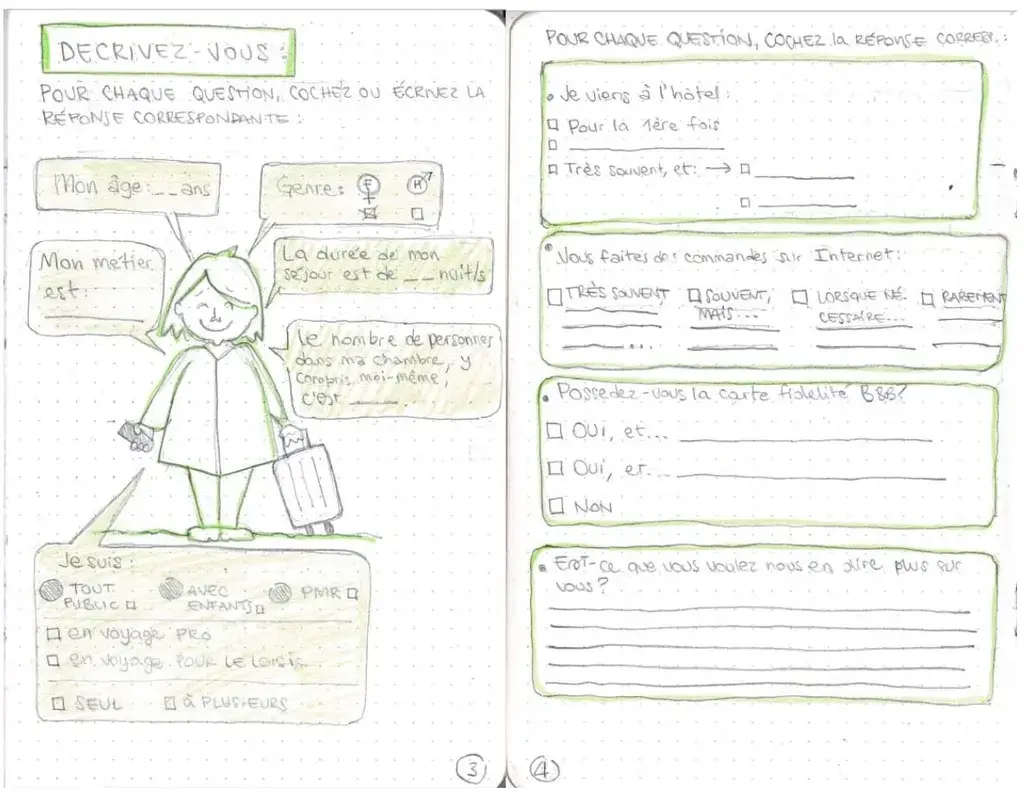 DECRIVEZ-VOUS :
POUR CHAQUE QUESTION, COCHEZ OU ÉCRIVEZ LA
RÉPONSE CORRESPONDANTE :
Mon âge : __ ans
Genre : F H
Mon métier
est :
La durée de mon
séjour est de __ nuit/s
Le nombre de personnes
dans ma chambre, y
compris moi-même,
c'est ____.
Je suis :
TOUT
PUBLIC
AVEC
ENFANTS
PMR
en voyage PRO
en voyage POUR LE LOISIR
SEUL
à PLUSIEURS
3
POUR CHAQUE QUESTION, COCHEZ la RÉPONSE CORRESP. :
Je viens à l'hôtel :
Pour la 1ère fois
Très souvent, et : →
Vous faites des commandes sur Internet :
TRÈS SOUVENT
...
SOUVENT,
MAIS...
LORSQUE NÉ-
CESSAIRE...
RAREMENT
Possedez-vous la carte fidelité B&B?
OUI, et...
OUI, et...
NON
Est-ce que vous voulez nous en dire plus sur
vous ?
4